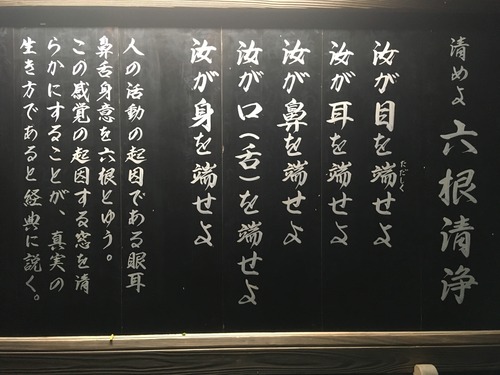 清めよ 六根清浄
汝が目を端せよ
ただしく
汝が耳を端せよ
汝が鼻を端せよ
汝が口（舌）を端せよ
汝が身を端せよ
人の活動の起因である眼耳
鼻舌身意を六根とゆう。
この感覚の起因する窓を清
らかにすることが、真実の
生き方であると経典に説く。